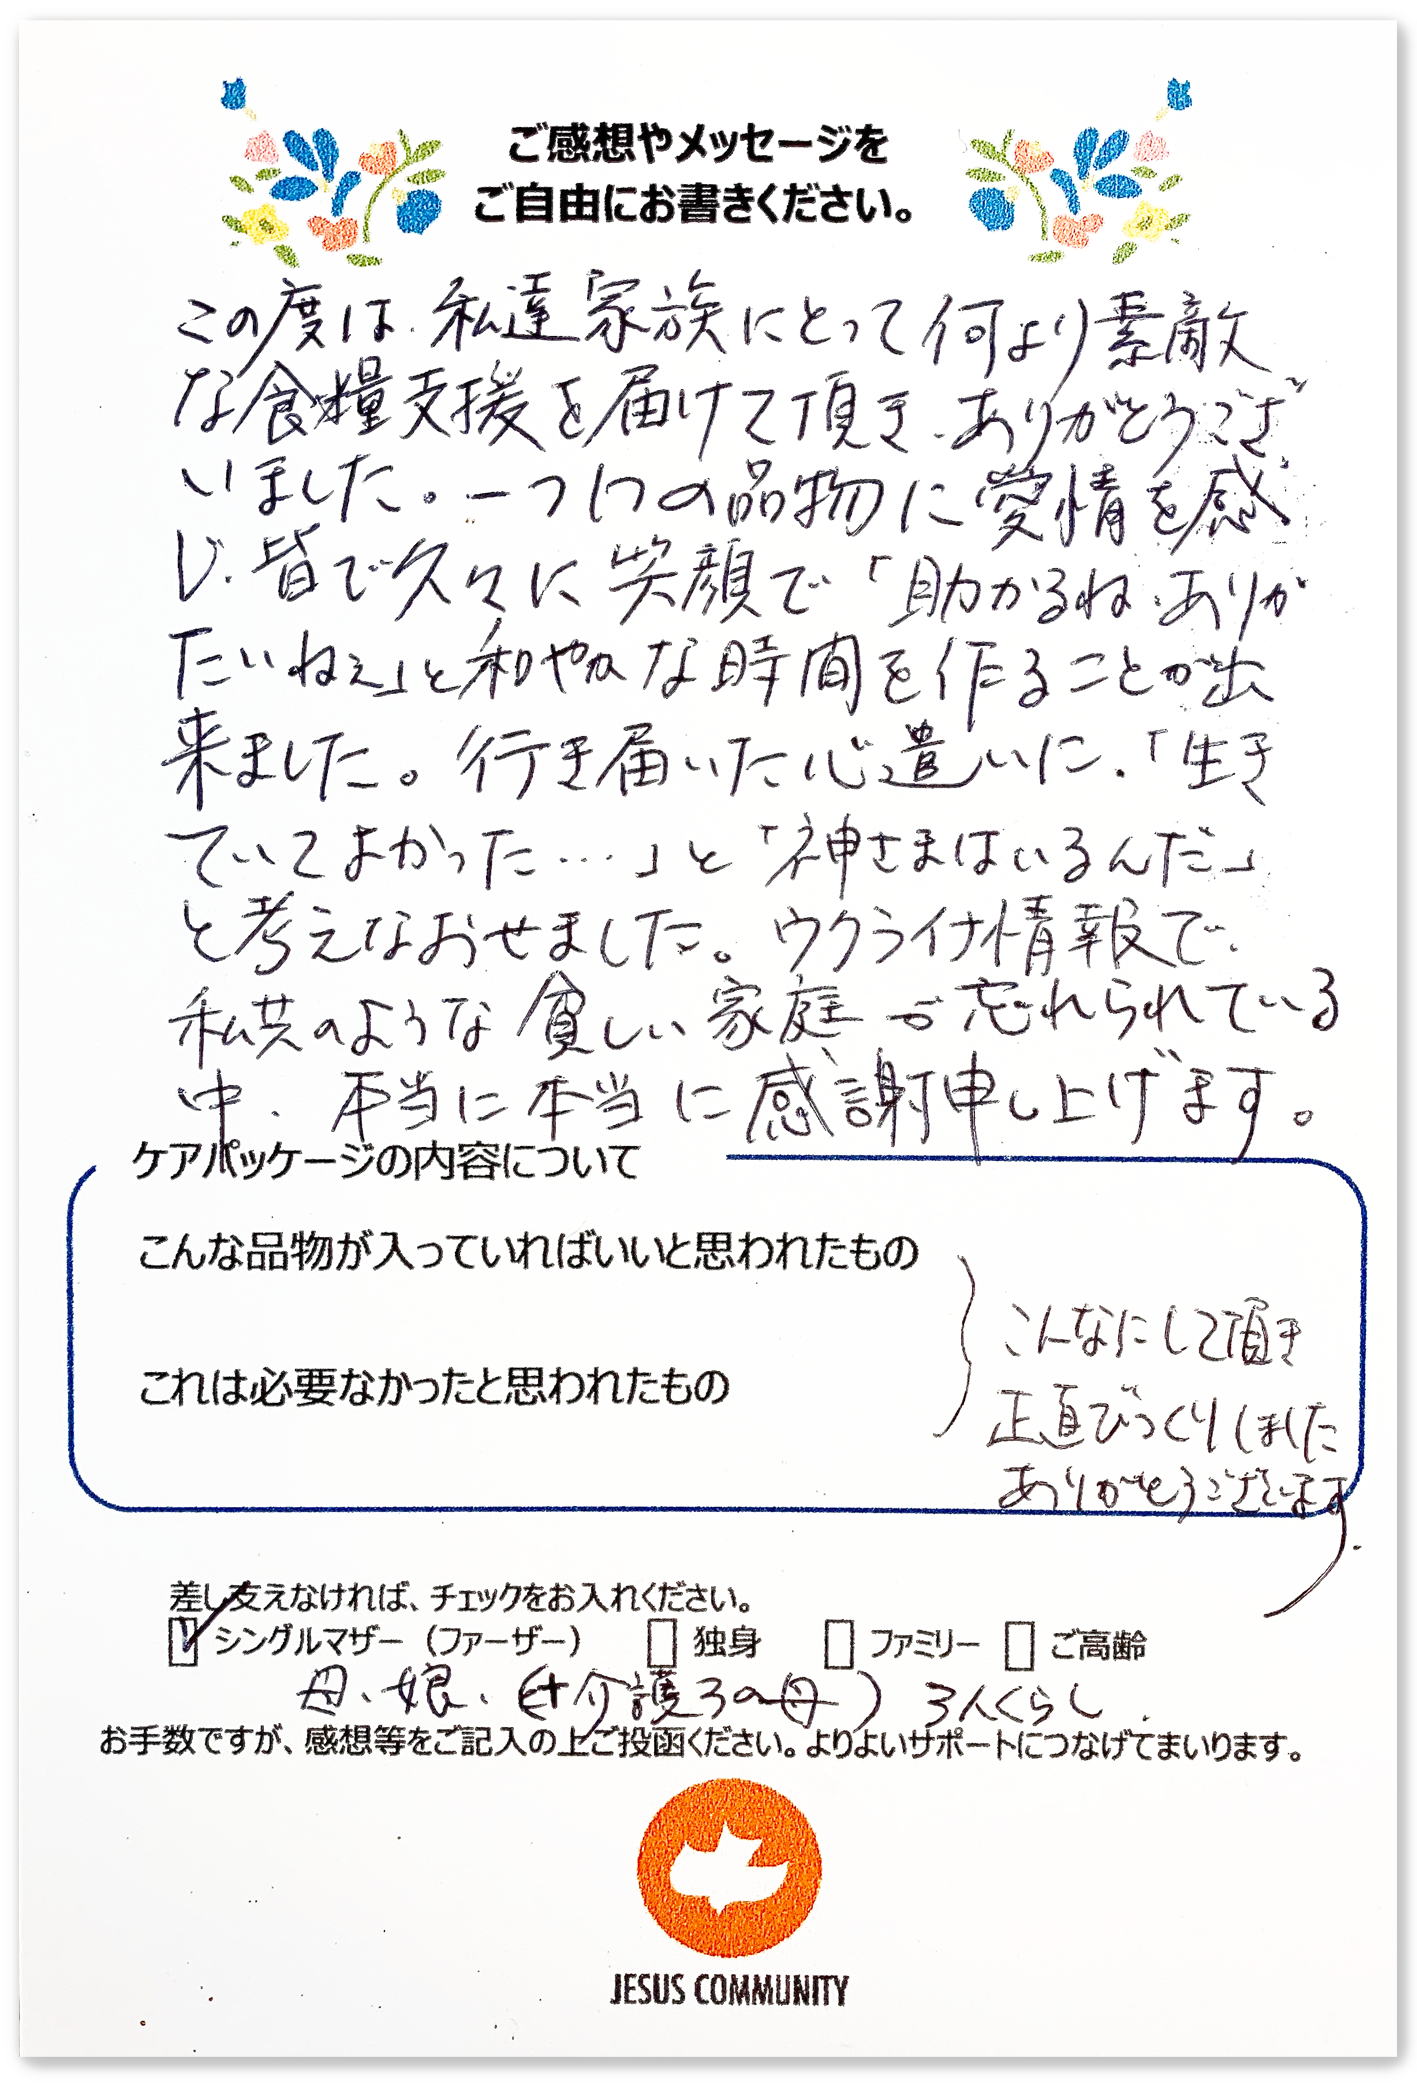 ご感想やメッセージを
ご自由にお書きください。
この度は、私達家族にとって何より素敵
な食糧支援を届けて頂き、ありがとうござ
いました。一つ1つの品物に愛情を感
じ、皆で久々に笑顔で「助かるね、ありが
たいねぇ」と和やかな時間を作ることが出
来ました。行き届いた心遣いに、「生き
ていてよかった…」と「神さまはいるんだ」
と考えなおせました。ウクライナ情報で、
私共のような貧しい家庭が忘れられている
中、本当に本当に感謝申し上げます。
ケアパッケージの内容について
こんな品物が入っていればいいと思われたもの
これは必要なかったと思われたもの
こんなにして頂き
正直びっくりしました
ありがとうございます。
差し支えなければ、チェックをお入れください。
シングルマザー（ファーザー） 独身 ファミリー ご高齢
母、娘、(+介護3の母) 3人くらし.
お手数ですが、感想等をご記入の上ご投函ください。よりよいサポートにつなげてまいります。
JESUS COMMUNITY